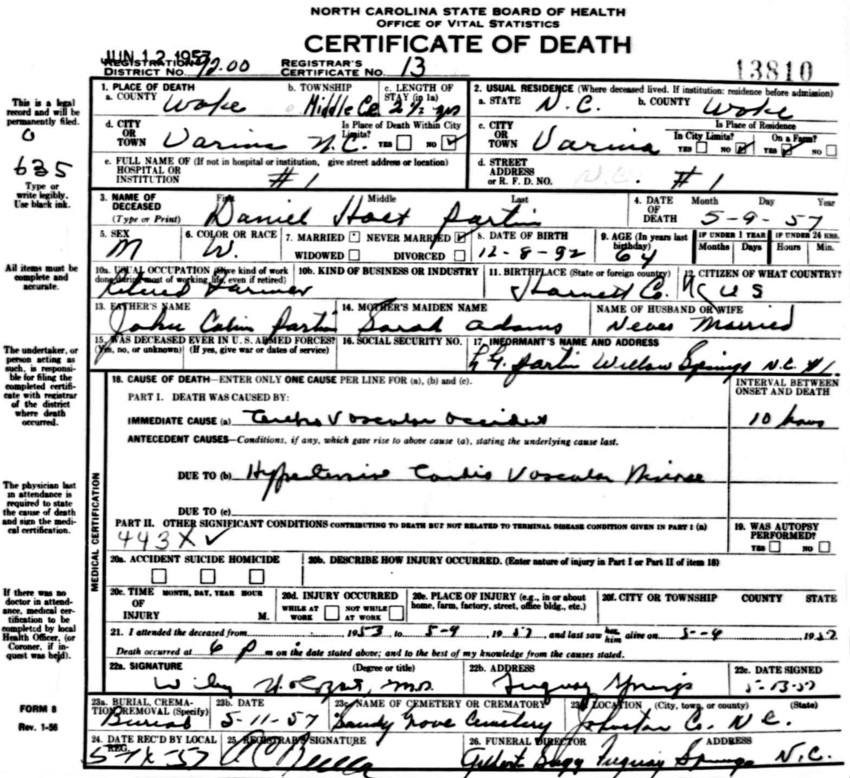 NORTH CAROLINA STATE BOARD OF HEALTH
OFFICE OF VITAL STATISTICS
CERTIFICATE OF DEATH
JUN 12 1957
REGISTRATION DISTRICT No. 92.00 REGISTRAR'S CERTIFICATE No. 13 13810
This is a legal record and will be permanently filed.
635
Type or write legibly. Use black ink.
All items must be complete and accurate.
The undertaker, or person acting as such, is responsible for filing the completed certificate with registrar of the district where death occurred.
The physician last in attendance is required to state the cause of death and sign the medical certification.
If there was no doctor in attendance, medical certification to be completed by local Health Officer, (or Coroner, if inquest was held).
FORM 8
Rev. 1-56
1. PLACE OF DEATH
a. COUNTY Wake
b. TOWNSHIP Middle Ck
c. LENGTH OF STAY (in 1a) 2 1/2 yrs
2. USUAL RESIDENCE (Where deceased lived. If institution: residence before admission)
a. STATE N.C. b. COUNTY Wake
d. CITY OR TOWN Varina N.C.
Is Place of Death Within City Limits? YES NO
c. CITY OR TOWN Varina
Is Place of Residence
In City Limits? YES NO On a Farm? YES NO
e. FULL NAME OF (If not in hospital or institution, give street address or location) HOSPITAL OR INSTITUTION #1
d. STREET ADDRESS or R. F. D. NO. N.C. #1
3. NAME OF DECEASED (Type or Print) First Middle Last
Daniel Holt Partin
4. DATE OF DEATH Month Day Year
5-9-57
5. SEX M
6. COLOR OR RACE W.
7. MARRIED NEVER MARRIED
WIDOWED DIVORCED
8. DATE OF BIRTH 12-8-92
9. AGE (In years last birthday) 64
IF UNDER 1 YEAR Months Days
IF UNDER 24 HRS. Hours Min.
10a. USUAL OCCUPATION (Give kind of work done during most of working life, even if retired) Retired Farmer
10b. KIND OF BUSINESS OR INDUSTRY
11. BIRTHPLACE (State or foreign country) Harnett Co. N.C
12. CITIZEN OF WHAT COUNTRY? US
13. FATHER'S NAME John Calvin Partin
14. MOTHER'S MAIDEN NAME Sarah Adams
NAME OF HUSBAND OR WIFE Never Married
15. WAS DECEASED EVER IN U. S. ARMED FORCES? (Yes, no, or unknown) (If yes, give war or dates of service)
16. SOCIAL SECURITY NO.
17. INFORMANT'S NAME AND ADDRESS
Partin Willow Springs N.C. #1.
18. CAUSE OF DEATH—ENTER ONLY ONE CAUSE PER LINE FOR (a), (b) and (c).
INTERVAL BETWEEN ONSET AND DEATH
PART I. DEATH WAS CAUSED BY:
IMMEDIATE CAUSE (a) Cerebro Vascular Accident 10 hours
ANTECEDENT CAUSES—Conditions, if any, which gave rise to above cause (a), stating the underlying cause last.
DUE TO (b) Hypertensive Cardio Vascular Disease
DUE TO (c)
PART II. OTHER SIGNIFICANT CONDITIONS CONTRIBUTING TO DEATH BUT NOT RELATED TO TERMINAL DISEASE CONDITION GIVEN IN PART I (a)
443X
19. WAS AUTOPSY PERFORMED? YES NO
MEDICAL CERTIFICATION
20a. ACCIDENT SUICIDE HOMICIDE
20b. DESCRIBE HOW INJURY OCCURRED. (Enter nature of injury in Part I or Part II of item 18)
20c. TIME OF INJURY MONTH, DAY, YEAR HOUR M.
20d. INJURY OCCURRED WHILE AT WORK NOT WHILE AT WORK
20e. PLACE OF INJURY (e.g., in or about home, farm, factory, street, office bldg., etc.)
20f. CITY OR TOWNSHIP COUNTY STATE
21. I attended the deceased from 1953 to 5-9 1957 and last saw her him alive on 5-9 1957
Death occurred at 6 p m on the date stated above; and to the best of my knowledge from the causes stated.
22a. SIGNATURE (Degree or title) M.D.
22b. ADDRESS Fuquay Springs
22c. DATE SIGNED 5-13-57
23a. BURIAL, CREMATION, REMOVAL (Specify) Burial
23b. DATE 5-11-57
23c. NAME OF CEMETERY OR CREMATORY Sandy Grove Cemetery
23d. LOCATION (City, town, or county) (State) Johnston Co. N.C.
24. DATE REC'D BY LOCAL REG.
25. REGISTRAR'S SIGNATURE
26. FUNERAL DIRECTOR ADDRESS
Fuquay Springs N.C.